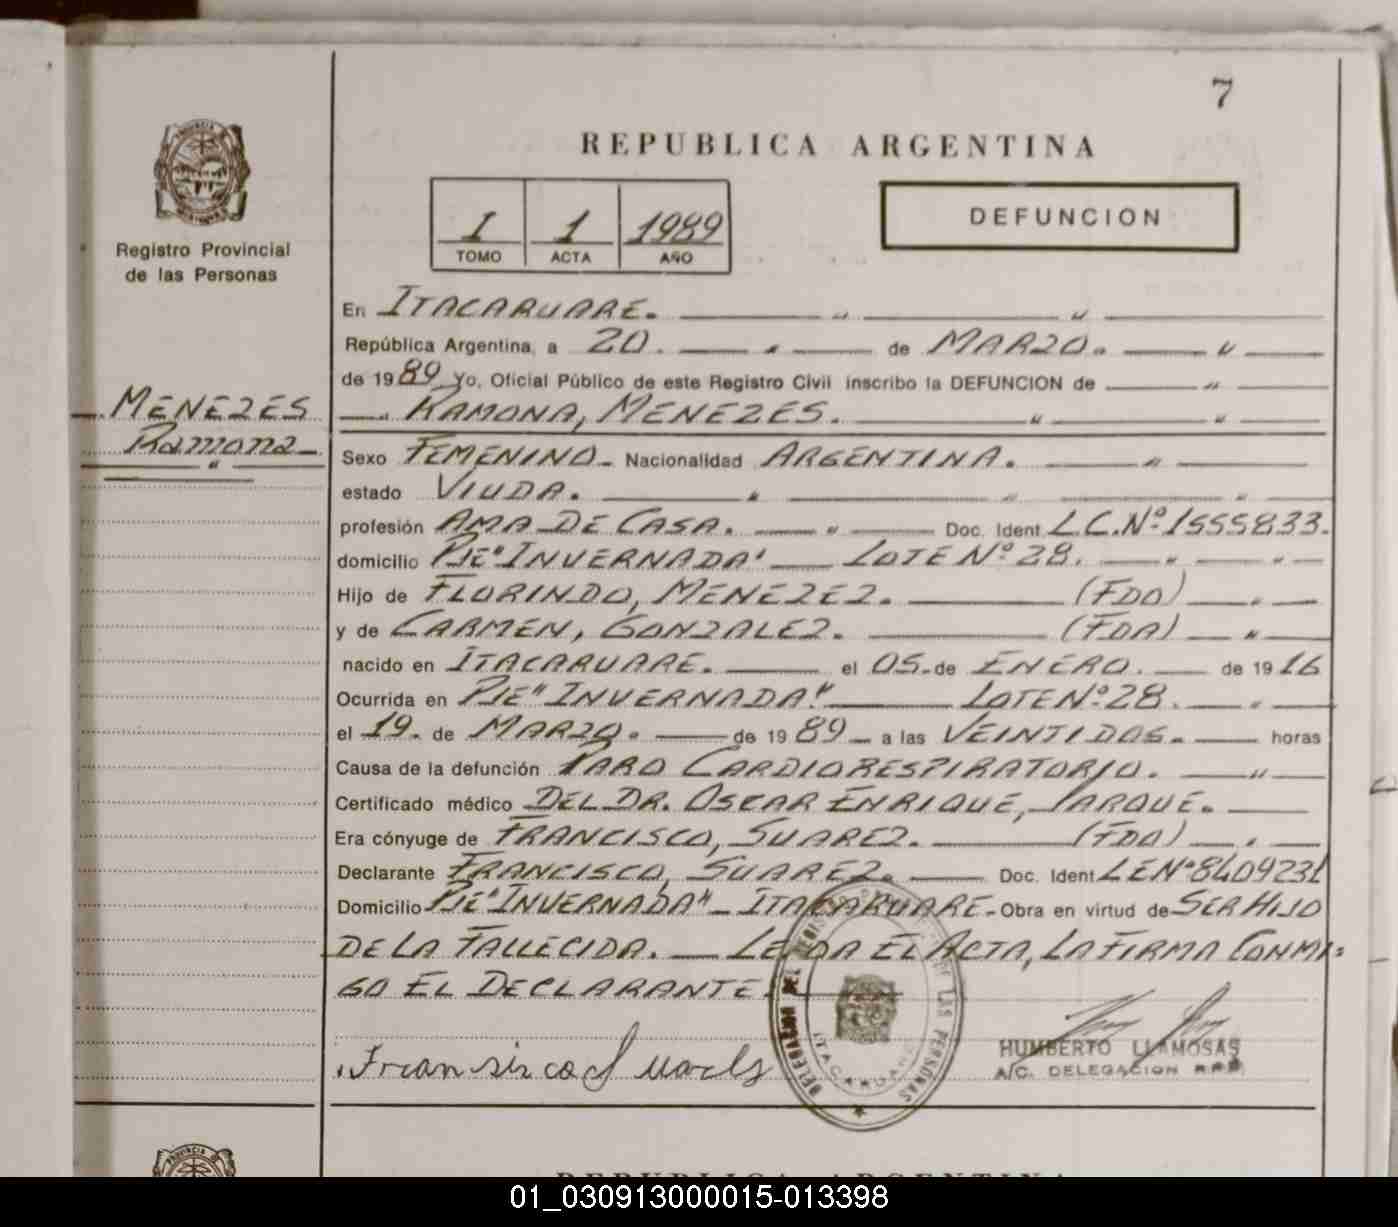 7
REPUBLICA ARGENTINA
I 1 1989
TOMO ACTA AÑO
DEFUNCION
Registro Provincial
de las Personas
MENEZES
Ramona
En ITACARUARE.
República Argentina, a 20. de MARZO.
de 1989 Yo, Oficial Público de este Registro Civil inscribo la DEFUNCION de
RAMONA, MENEZES.
Sexo FEMENINO Nacionalidad ARGENTINA.
estado VIUDA.
profesión AMA DE CASA. Doc. Ident. L.C.Nº.1555833.
domicilio PJE"INVERNADA" LOTE Nº28.
Hijo de FLORINDO, MENEZEZ. (FDO)
y de CARMEN, GONZALEZ. (FDA)
nacido en ITACARUARE. el 05. de ENERO. de 1916
Ocurrida en PJE"INVERNADA". LOTE Nº.28.
el 19. de MARZO. de 1989 a las VEINTIDOS. horas
Causa de la defunción PARO CARDIORESPIRATORIO.
Certificado médico DEL DR. OSCAR ENRIQUE, PARQUE.
Era cónyuge de FRANCISCO, SUAREZ. (FDO)
Declarante FRANCISCO, SUAREZ. Doc. Ident. L.E Nº8409231
Domicilio PJE"INVERNADA" ITACARUARE. Obra en virtud de SER HIJO
DE LA FALLECIDA. LEIDA EL ACTA, LA FIRMA CONMI-
GO EL DECLARANTE.
DELEGACION DEL REGISTRO DE LAS PERSONAS
ITACARUARE
HUMBERTO LLAMOSAS
A/C. DELEGACION RPP
REPUBLICA ARGENTINA
01_030913000015-013398